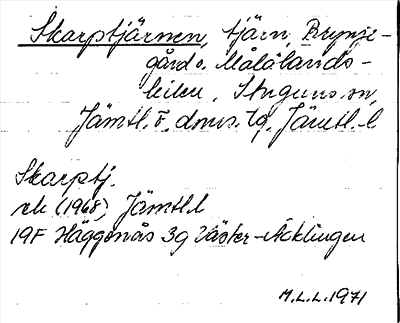 Skarptjärnen, tjärn, Brynje-
gård o. Målålands-
leden, Stuguns sn,
Jämtl. ö. dmvs. tg, Jämtl. l
Skarptj.
ek (1968) Jämtl.l
19F Häggenås 3g Väster-Acklingen
M.L.L. 1971